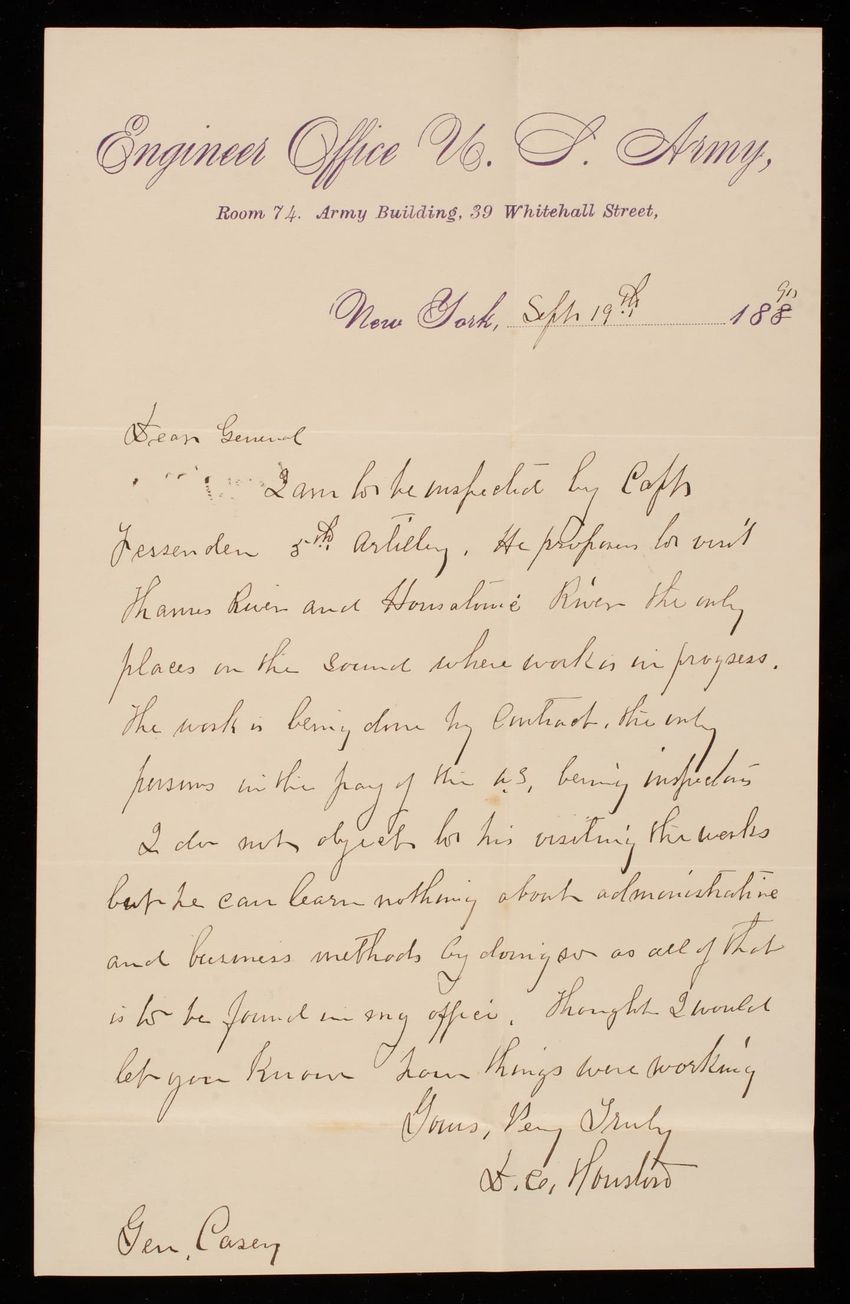 Engineer Office U. S. Army,
Room 74. Army Building, 39 Whitehall Street,
New York, Sept 19th 188890
Dear General
I am to be inspected by Capt
Fessenden 5th Artillery. He proposes to visit
Thames River and Housatonic River the only
places on the Sound where work is in progress.
The work is being done by Contract, the only
persons in the pay of the U.S, being inspectors
I do not object to his visiting the works
but he can learn nothing about administrative
and business methods by doing so as all of that
is to be found in my office. Thought I would
let you know how things were working
Yours, Very Truly
D. C. Houston
Gen. Casey